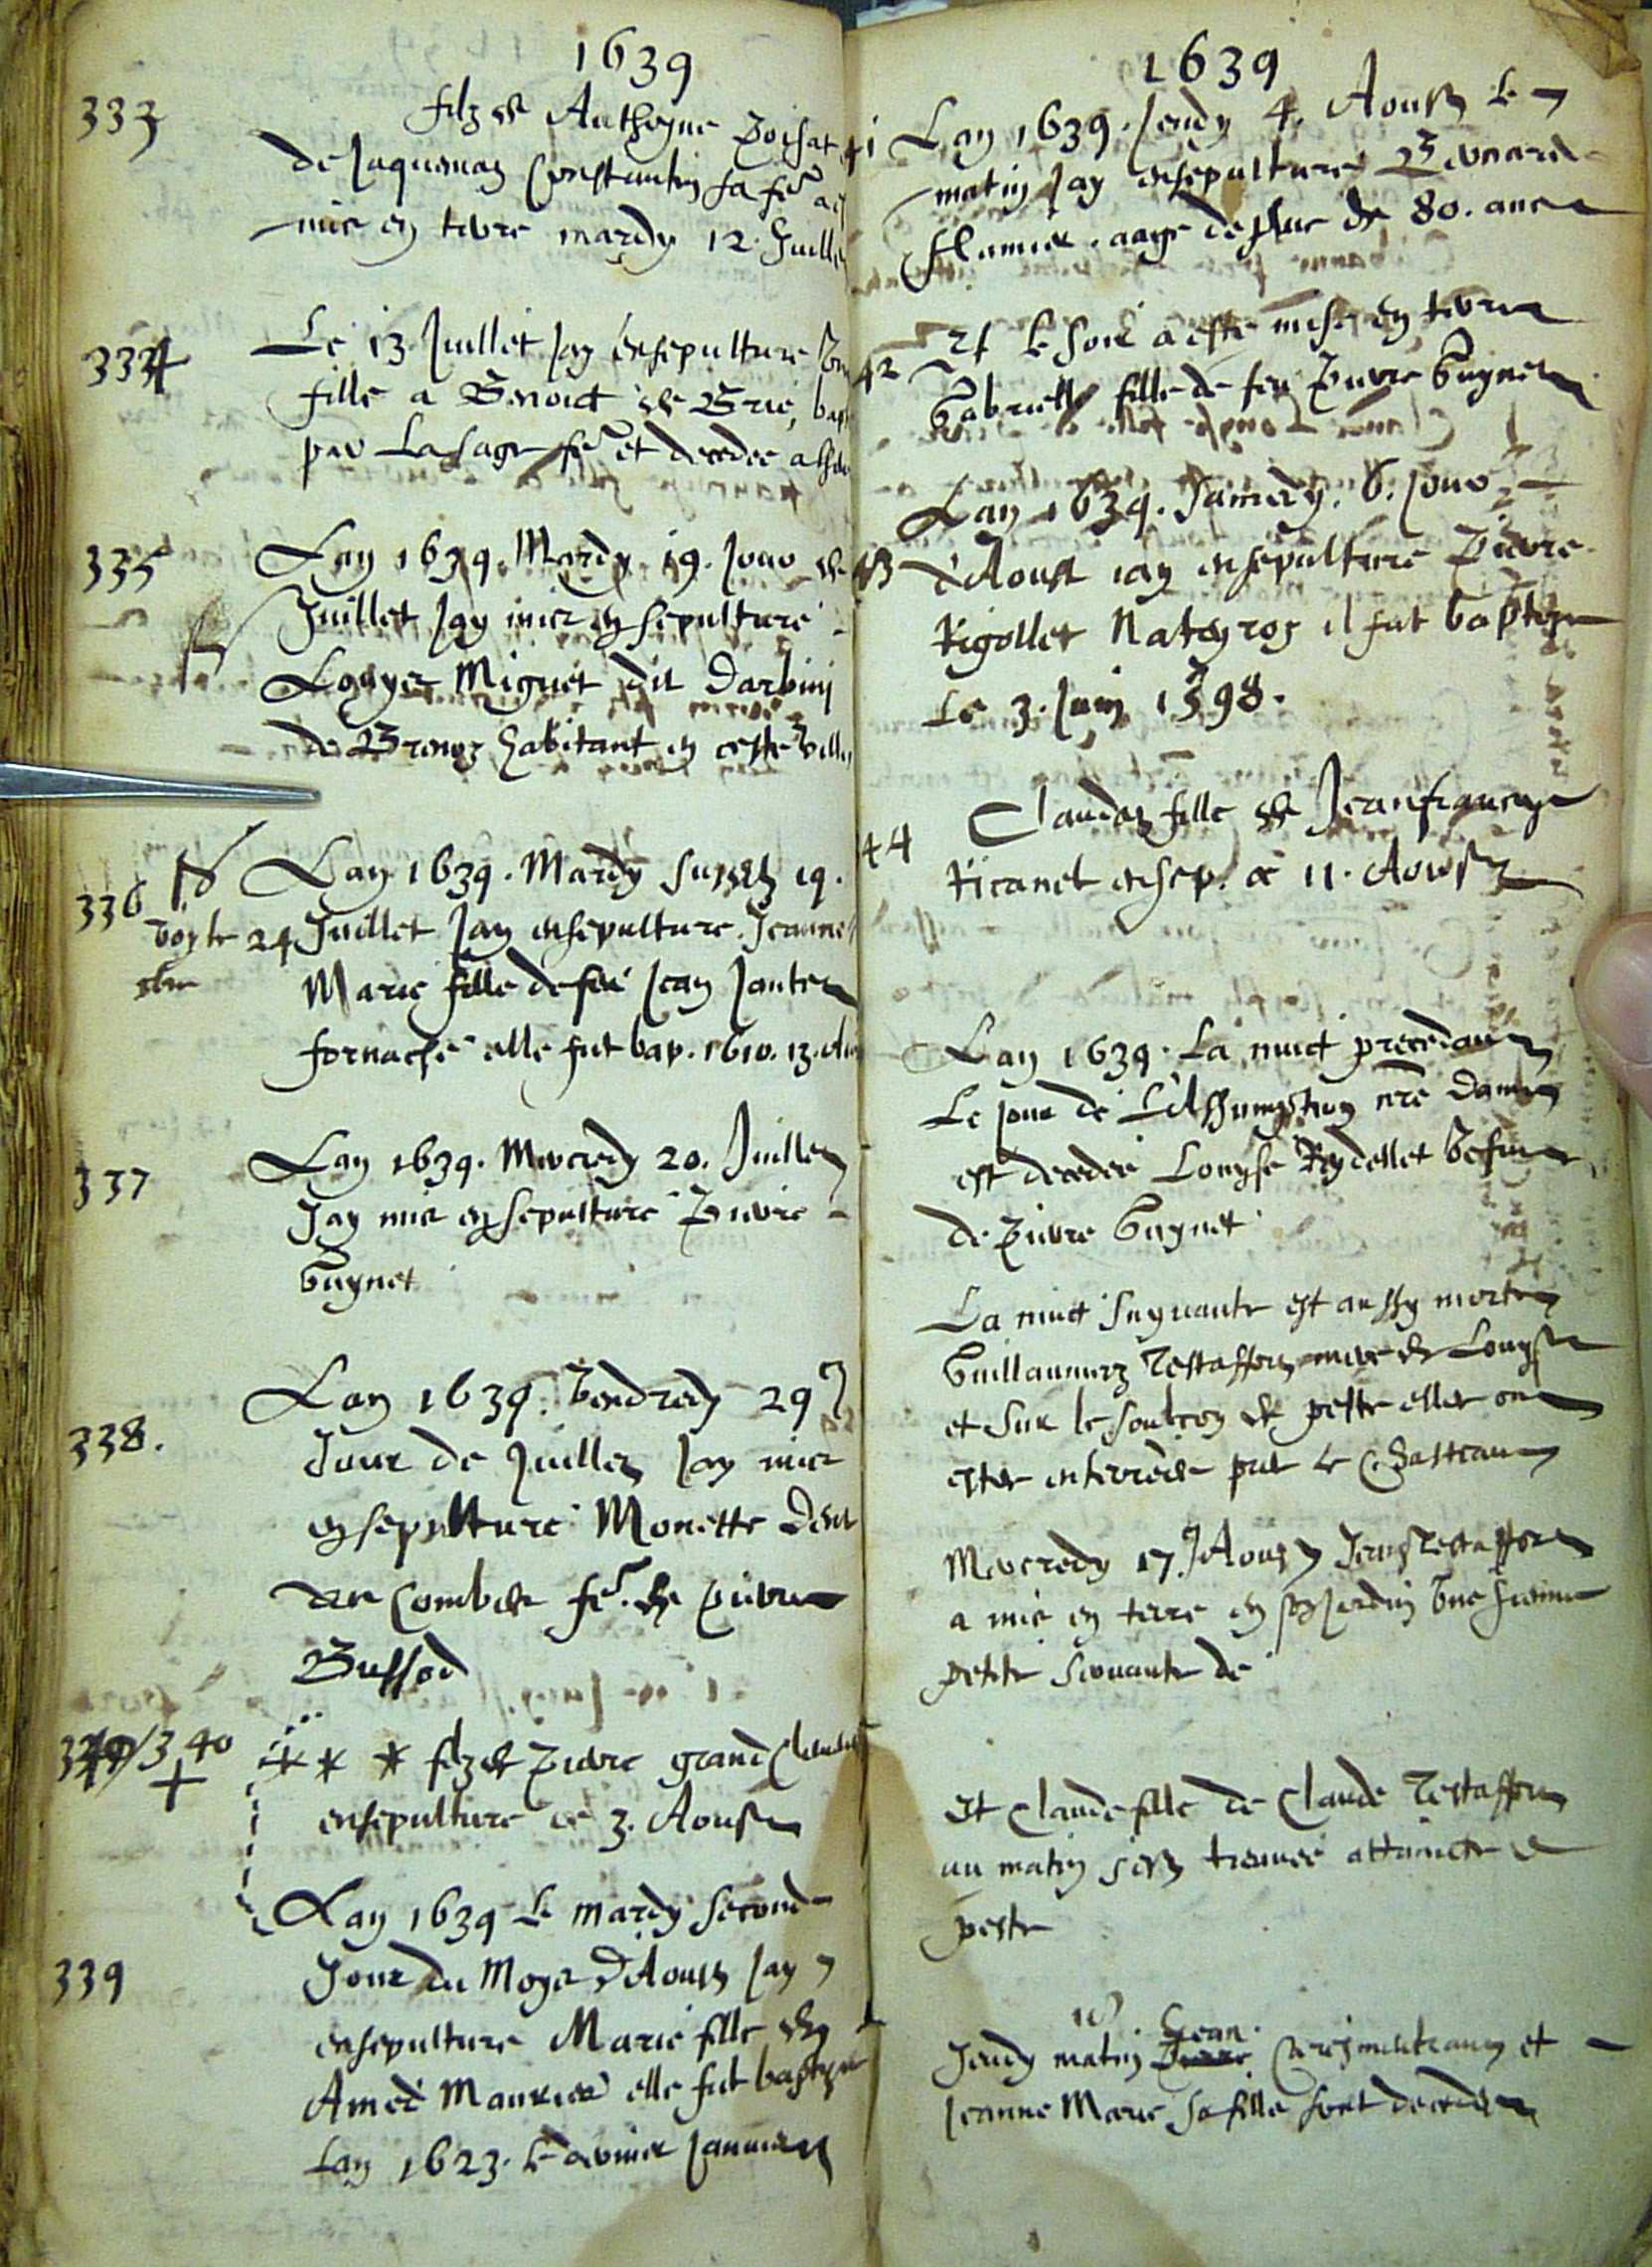 1639
333
filz de Anthoyne Poisat
de Jaquemaz Constantin sa fe
mis en terre mardy 12. Juillet
334
Le 13 Juillet Jay ensepulture
fille a Benoict de Brie, bap
par La sage fe et decedee
335
Lan 1639. Mardy 19. Jour de
Juillet Jay mis en sepulture
Loyys Miguet dit Darbin
de Brenoz habitant en ceste ville
336
Lan 1639. Mardy 19.
24 Juillet Jay ensepulture Jeanne
Marie fille de feu Jean Janter
fornache elle fut bap. 1610. 13.
337
Lan 1639. Mercredy 20. Juillet
Jay mis en sepulture Pierre
Guynet
338.
Lan 1639. Vendredy 29
Jour de Juillet Jay mis
en sepulture Monette
des Combes fe. de Pierre
Bussod
340
filz de Pierre grand
ensepulture ce 3. Aoust
Lan 1639 Le mardy second
339
Jour du Moys d'Aoust Jay
ensepulture Marie fille de
Amed Maurier elle fut baptize
Lan 1623. le dernier Janvier
1639
41
Lan 1639. Jeudy 4. Aoust le
matin Jay ensepulture Bernard
Flamier. aage de plus de 80. ans
42
Et le soir a este mise en terre
Gabrielle fille de feu Pierre Guynet
Lan 1639. Samedy. 6. Jour
43
d'Aoust iay ensepulture Pierre
Rigollet Nateyroz il fut baptize
Le 3. Juin 1598.
44
Claudaz fille de Jeanfrancoys
Ricanet ensep. ce 11. Aoust
Lan 1639. La nuict precedant
Le jour de L'Assumption nre Dame
est decedee Louyse Reydellet vefve
de Pierre Guynet
La nuict suyvante est aussy morte
Guillaumaz Testaffort mere de Louyse
et sur le soubcon de peste elles ont
estes enterrees par le Chasteau
Mercredy 17. Aoust Testaffort
a mis en terre en son Jardin une sienne
petite servante de
et Claude fille de Claude Testaffort
au matin sest treuvee attaincte de
peste
18. Jean
Jeudy matin Caresmentrant et
Jeanne Marie sa fille sont decedes